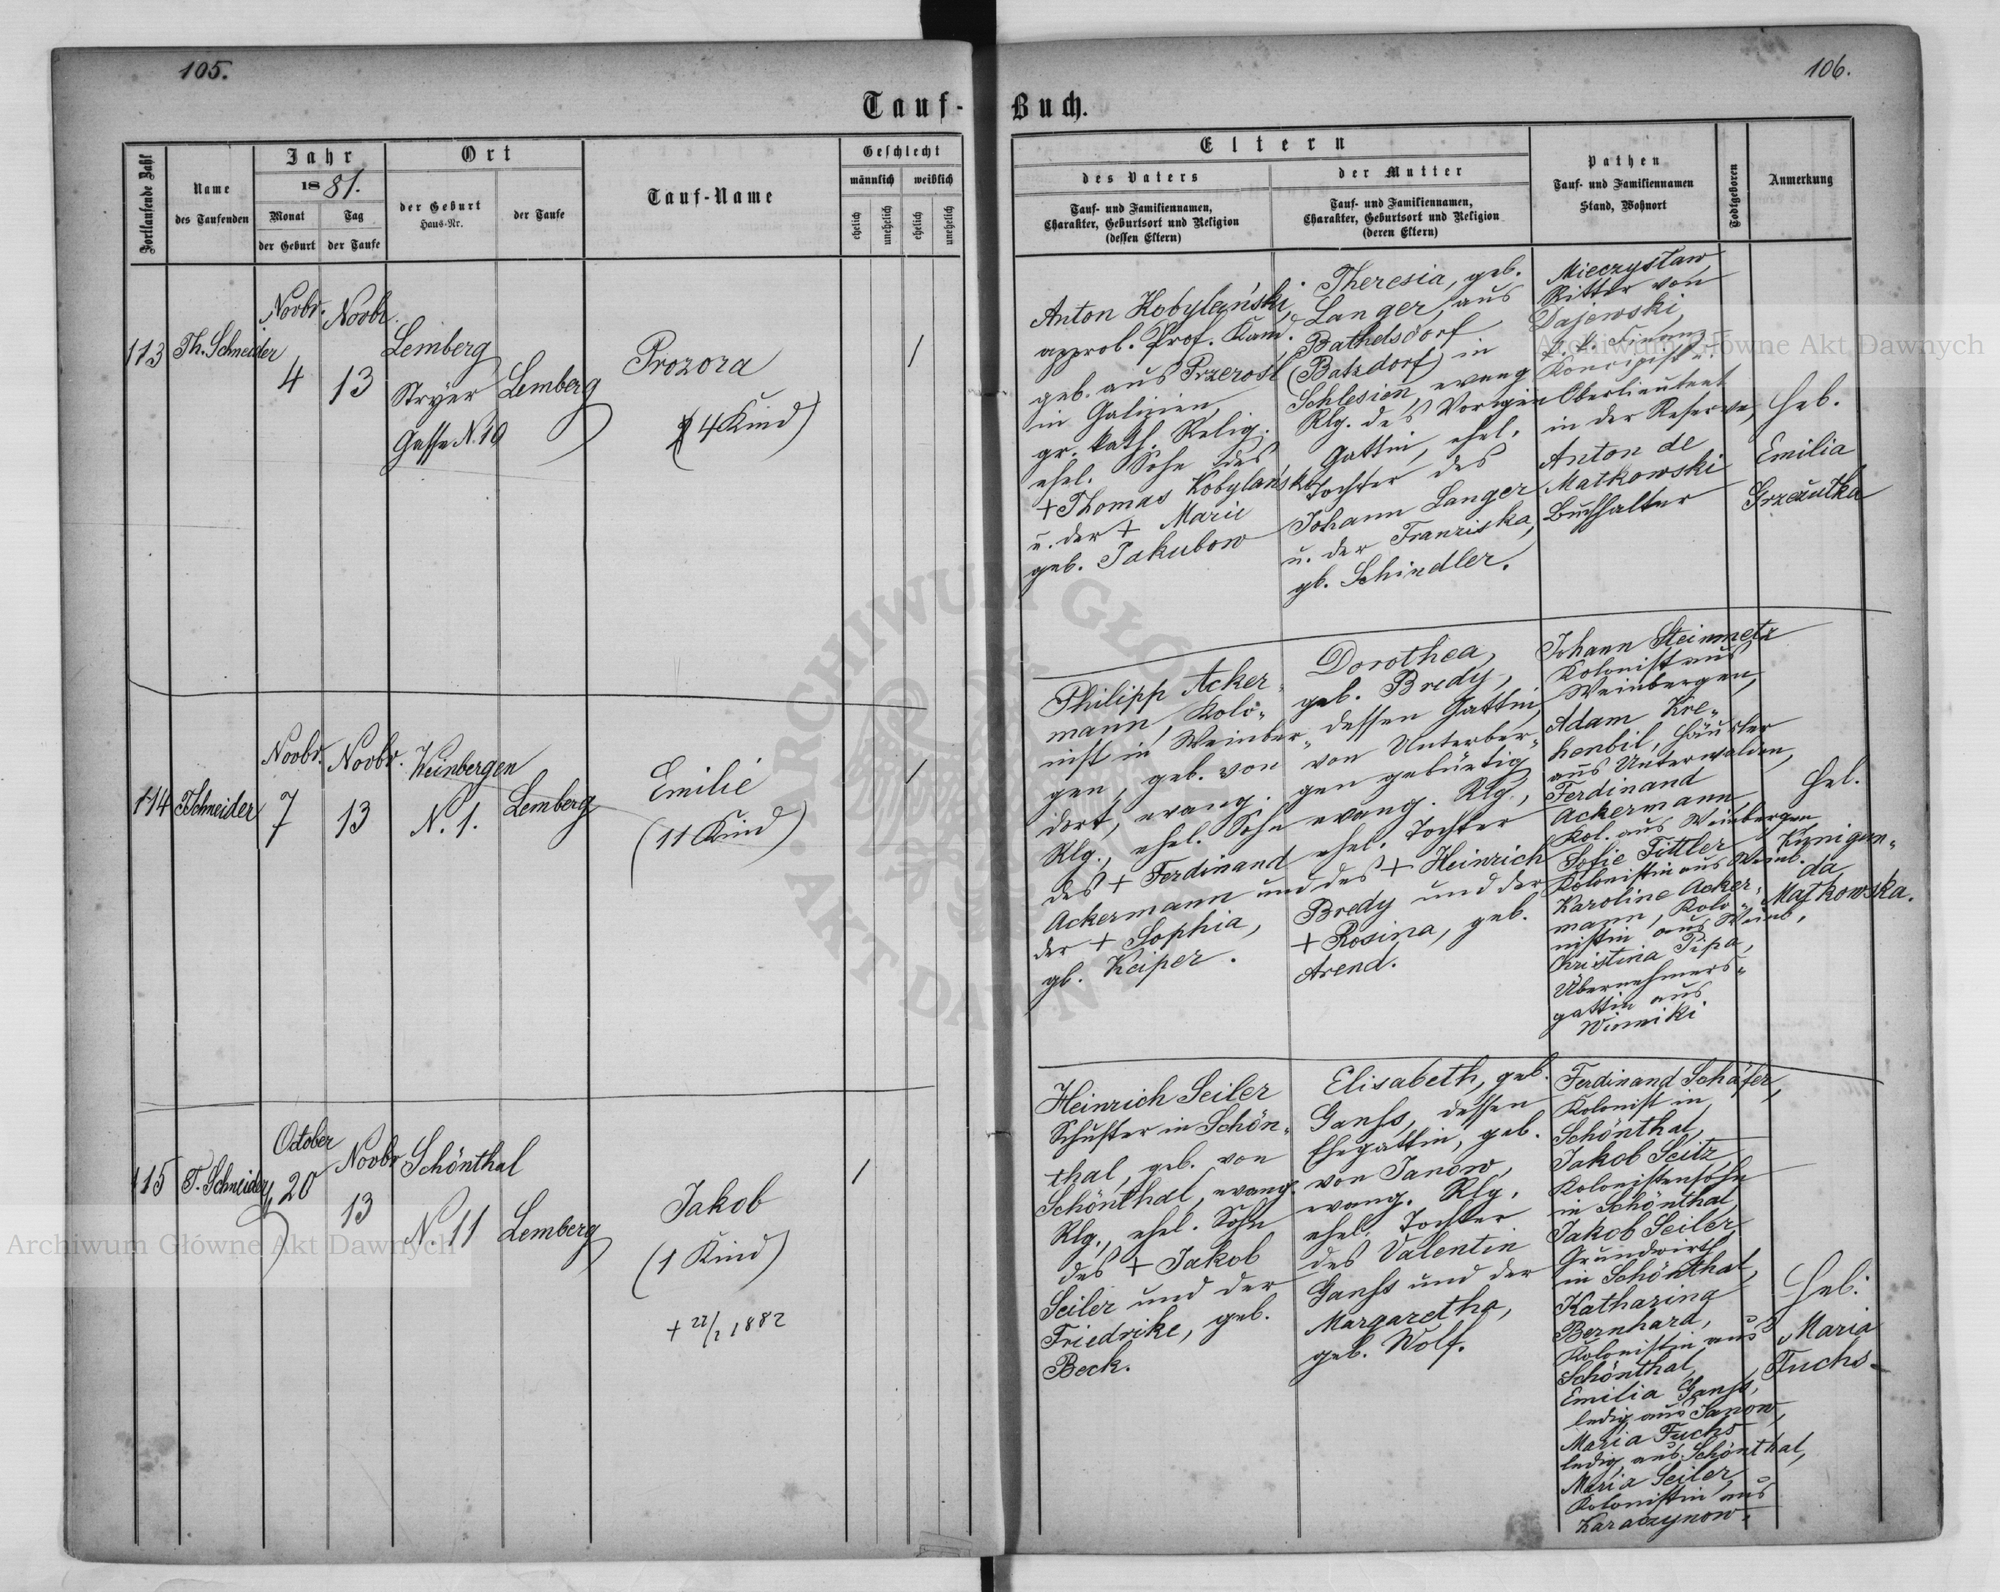 105.
106.
Tauf-Buch.
Fortlaufende Zahl
Name
des Taufenden
Jahr
1881.
Monat
der Geburt
Tag
der Taufe
Ort
der Geburt
Haus-Nr.
der Taufe
Tauf-Name
Geschlecht
männlich
weiblich
ehelich
unehelich
ehelich
unehelich
Eltern
des Vaters
Tauf- und Familiennamen,
Charakter, Geburtsort und Religion
(dessen Eltern)
der Mutter
Tauf- und Familiennamen,
Charakter, Geburtsort und Religion
(deren Eltern)
Pathen
Tauf- und Familiennamen
Stand, Wohnort
Todtgeboren
Anmerkung
113
Th. Schneider
Novbr.
4
Novbr.
13
Lemberg
Stryer
Gasse N. 10
Lemberg
Prozora
(4 Kind)
/
Anton Kobylański,
approb. Prof. Kand.
geb. aus Przerosl
in Galizien,
gr. kath. Relig.
ehel. Sohn des
+ Thomas Kobylański
u. der + Marie
geb. Jakubow
Theresia, geb.
Langer, aus
Bathelsdorf
(Batzdorf) in
Schlesien, evang
Rlg. des Vorigen
Gattin, ehel.
Tochter des
Johann Langer
u. der Franziska,
gb. Schindler.
Mieczysław
Ritter von
Dajewski,
k. k. Finanz-
Konzipist u.
Oberlieutent
in der Reserve,
Anton de
Matkowski
Buchhalter
Heb.
Emilia
Grzeżutka
114
T. Schneider
Novbr.
7
Novbr.
13
Weinbergen
N. 1.
Lemberg
Emilie
(11 Kind)
/
Philipp Acker-
mann, Kolo-
nist in Weinber-
gen, geb. von
dort, evang.
Rlg., ehel. Sohn
des + Ferdinand
Ackermann und
der + Sophia,
gb. Keiper.
Dorothea,
geb. Bredy,
dessen Gattin,
von Unterber-
gen gebürtig
evang. Rlg.,
ehel. Tochter
des + Heinrich
Bredy und der
+ Rosina, geb.
Arend.
Johann Steinmetz
Kolonist aus
Weinbergen,
Adam Kre-
henbil, Häusler
aus Unterwalden,
Ferdinand
Ackermann,
Kol. aus Weinbergen
Sofie Tittler
Kolonistin aus Weinb.
Karoline Acker-
mann, Kolo-
nistin aus Weinb.,
Christina Pipa,
Übernehmers-
gattin aus
Winniki
Hel.
Kunigun-
da
Matkowska.
115
T. Schneider
October
20
Novbr
13
Schönthal
N. 11
Lemberg
Jakob
(1 Kind)
+ 22/1 1882
/
Heinrich Seiler
Schuster in Schön-
thal, geb. von
Schönthal, evang.
Rlg., ehel. Sohn
des + Jakob
Seiler und der
Friedrike, geb.
Beck.
Elisabeth, geb.
Ganhs, dessen
Ehegattin, geb.
von Janow,
evang. Rlg.
ehel. Tochter
des Valentin
Ganhs und der
Margaretha,
geb. Wolf.
Ferdinand Schäfer,
Kolonist in
Schönthal,
Jakob Seitz
Kolonistensohn
in Schönthal
Jakob Seiler
Grundwirth
in Schönthal,
Katharina
Bernhard,
Kolonistin aus
Schönthal,
Emilia Ganhs,
ledig aus Janow,
Maria Fuchs
ledig, aus Schönthal,
Maria Seiler,
Kolonistin aus
Karaczynow.
Heb:
Maria
Fuchs
Archiwum Główne Akt Dawnych
Archiwum Główne Akt Dawnych
ARCHIWUM GŁÓWNE AKT DAWNYCH